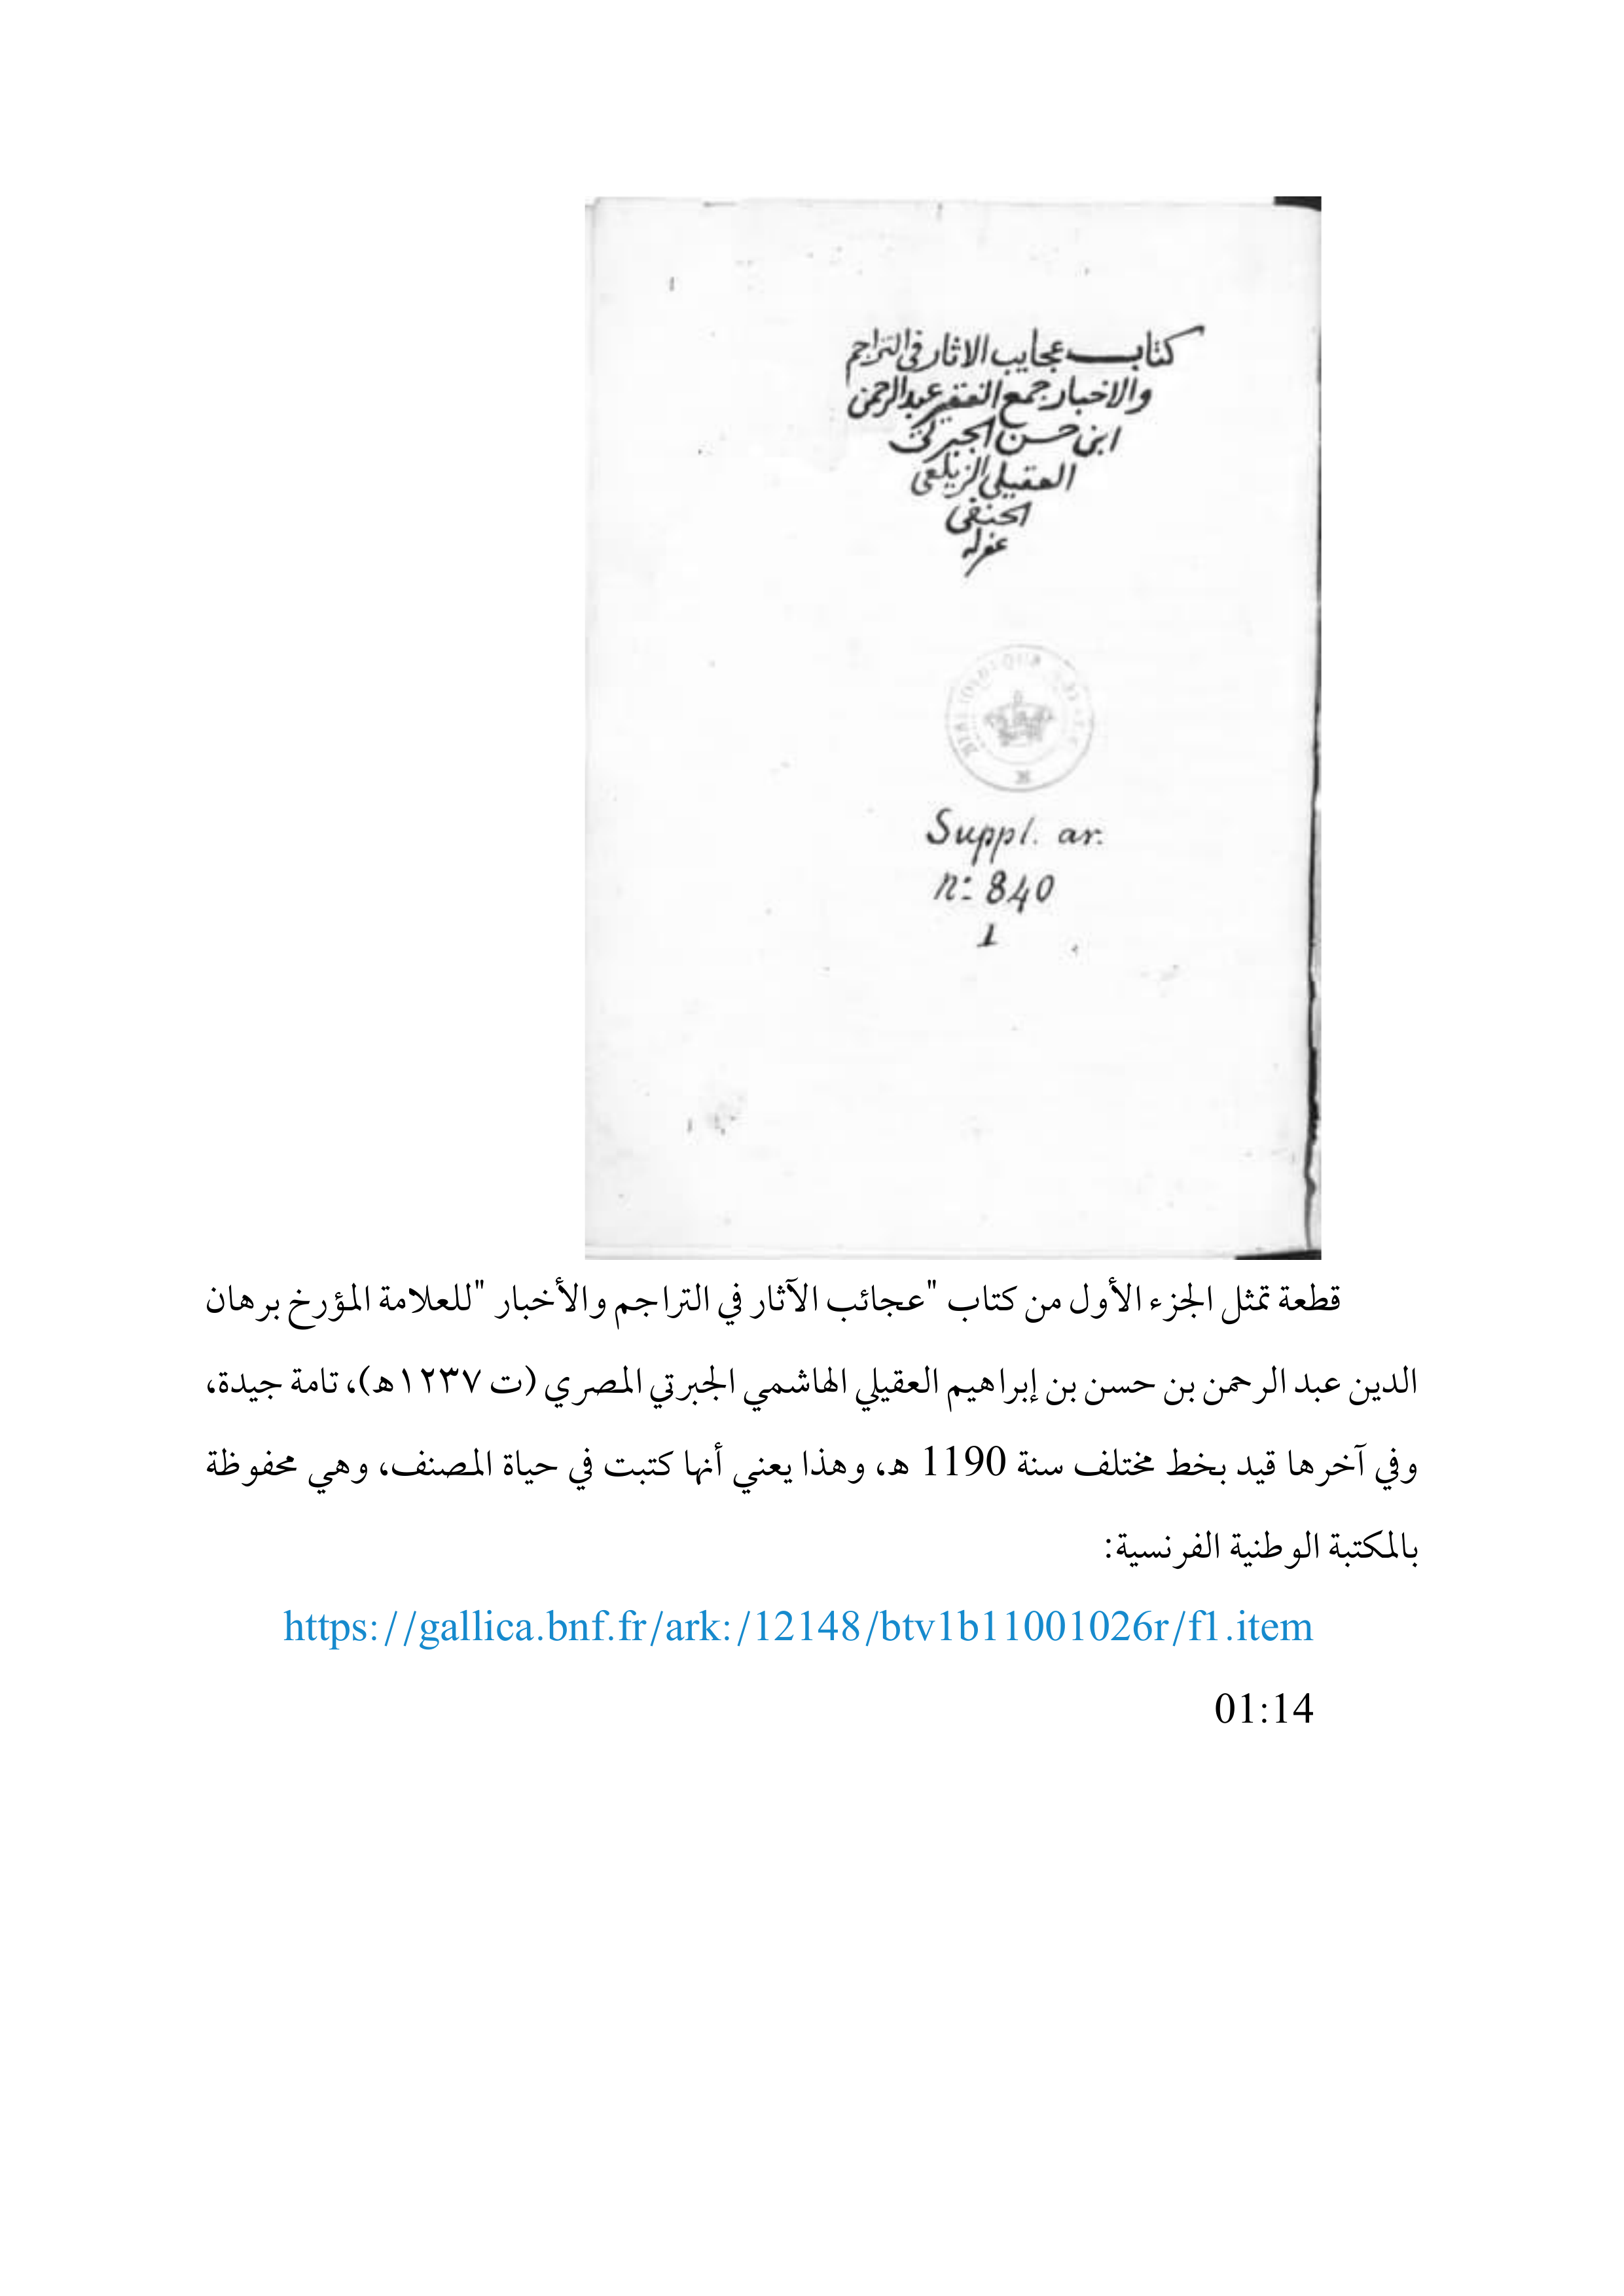 كتاب عجايب الاثار فى التراجم
والاخبار جمع الفقير عبد الرحمن
ابن حسن الجبرتى
العقيلى الزيلعى
الحنفى
غفر له
Suppl. ar.
n: 840
1
قطعة تمثل الجزء الأول من كتاب "عجائب الآثار في التراجم والأخبار "للعلامة المؤرخ برهان
الدين عبد الرحمن بن حسن بن إبراهيم العقيلي الهاشمي الجبرتي المصري (ت ١٢٣٧ه)، تامة جيدة،
وفي آخرها قيد بخط مختلف سنة 1190 ه، وهذا يعني أنها كتبت في حياة المصنف، وهي محفوظة
بالمكتبة الوطنية الفرنسية:
https://gallica.bnf.fr/ark:/12148/btv1b11001026r/f1.item
01:14